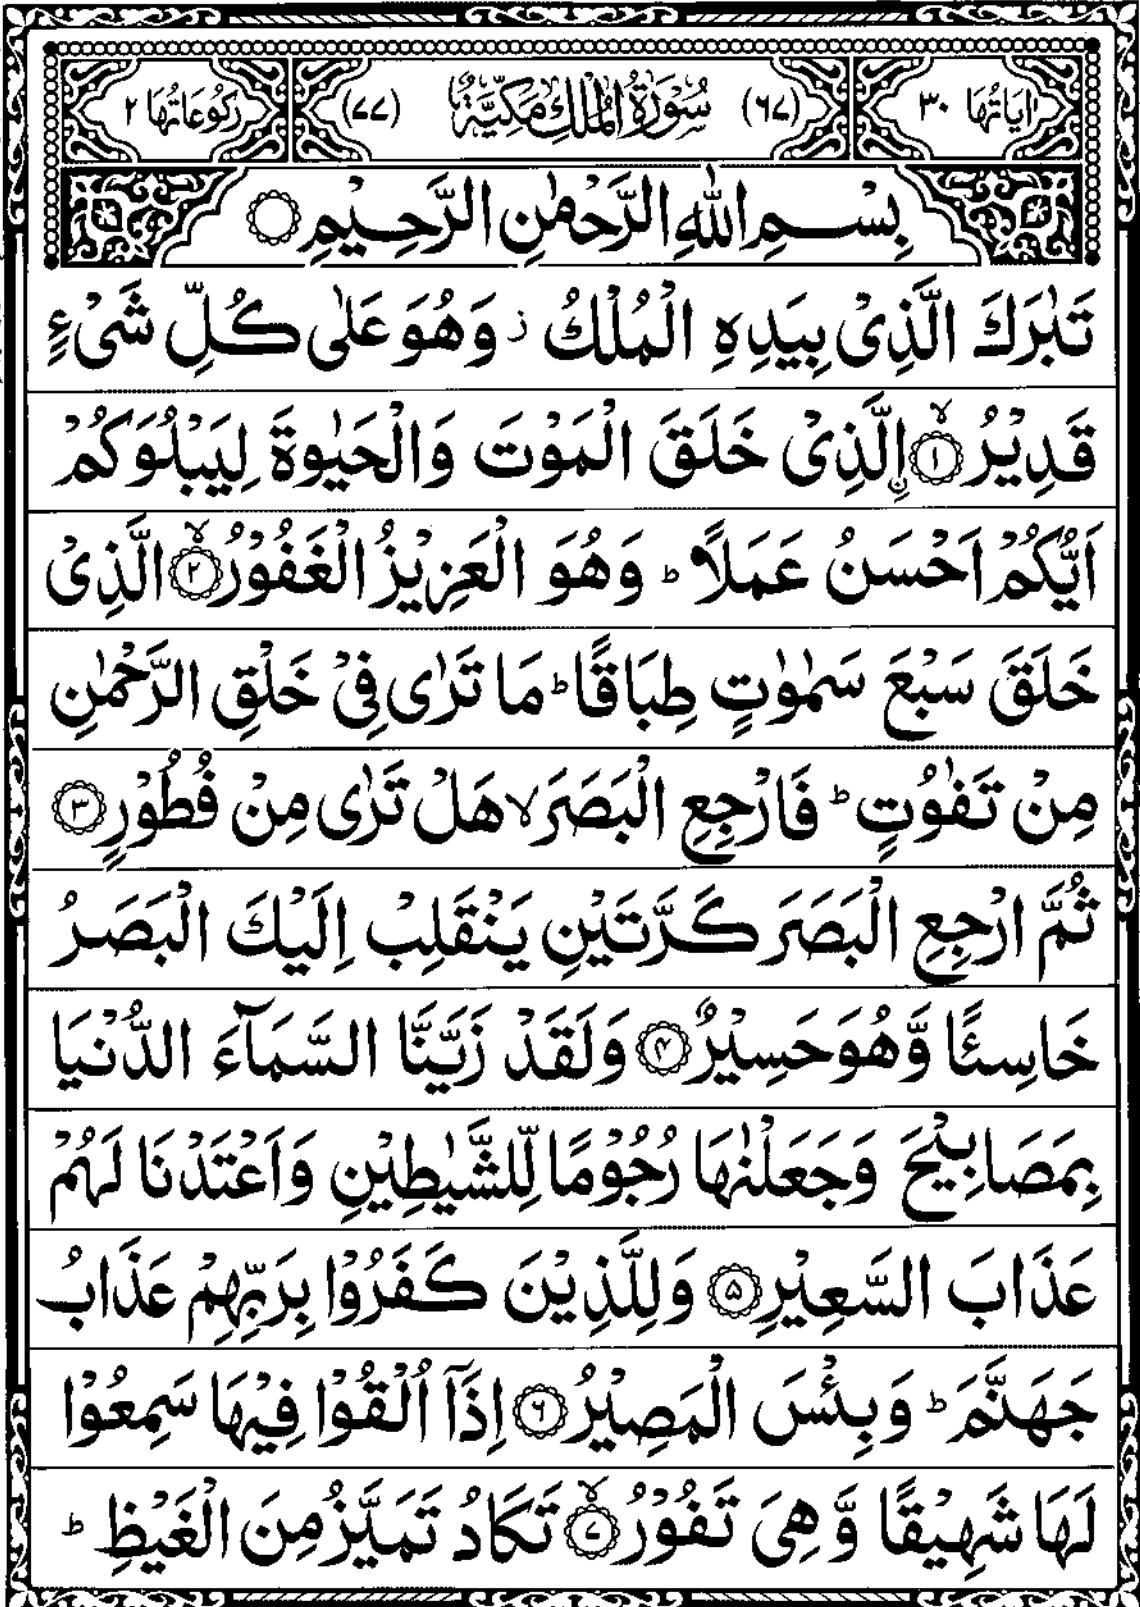 اٰيَاتُهَا ۳۰ (٦٧) سُوْرَةُ الْمُلْكِ مَكِّيَّةٌ (٧٧) رُكُوْعَاتُهَا ۲
بِسْمِ اللّٰهِ الرَّحْمٰنِ الرَّحِيْمِ ○
تَبٰرَكَ الَّذِیْ بِيَدِهِ الْمُلْكُ ؗ وَهُوَ عَلٰى كُلِّ شَیْءٍ
قَدِيْرُ ۙ﴿۱﴾ اۨلَّذِیْ خَلَقَ الْمَوْتَ وَالْحَيٰوةَ لِيَبْلُوَكُمْ
اَيُّكُمْ اَحْسَنُ عَمَلًا ؕ وَهُوَ الْعَزِيْزُ الْغَفُوْرُ ۙ﴿۲﴾ الَّذِیْ
خَلَقَ سَبْعَ سَمٰوٰتٍ طِبَاقًا ؕ مَا تَرٰى فِیْ خَلْقِ الرَّحْمٰنِ
مِنْ تَفٰوُتٍ ؕ فَارْجِعِ الْبَصَرَ ۙ هَلْ تَرٰى مِنْ فُطُوْرٍ ﴿۳﴾
ثُمَّ ارْجِعِ الْبَصَرَ كَرَّتَيْنِ يَنْقَلِبْ اِلَيْكَ الْبَصَرُ
خَاسِئًا وَّهُوَ حَسِيْرٌ ﴿۴﴾ وَلَقَدْ زَيَّنَّا السَّمَآءَ الدُّنْيَا
بِمَصَابِيْحَ وَجَعَلْنٰهَا رُجُوْمًا لِّلشَّيٰطِيْنِ وَاَعْتَدْنَا لَهُمْ
عَذَابَ السَّعِيْرِ ﴿۵﴾ وَلِلَّذِيْنَ كَفَرُوْا بِرَبِّهِمْ عَذَابُ
جَهَنَّمَ ؕ وَبِئْسَ الْمَصِيْرُ ﴿۶﴾ اِذَآ اُلْقُوْا فِيْهَا سَمِعُوْا
لَهَا شَهِيْقًا وَّهِیَ تَفُوْرُ ۙ﴿۷﴾ تَكَادُ تَمَيَّزُ مِنَ الْغَيْظِ ؕ